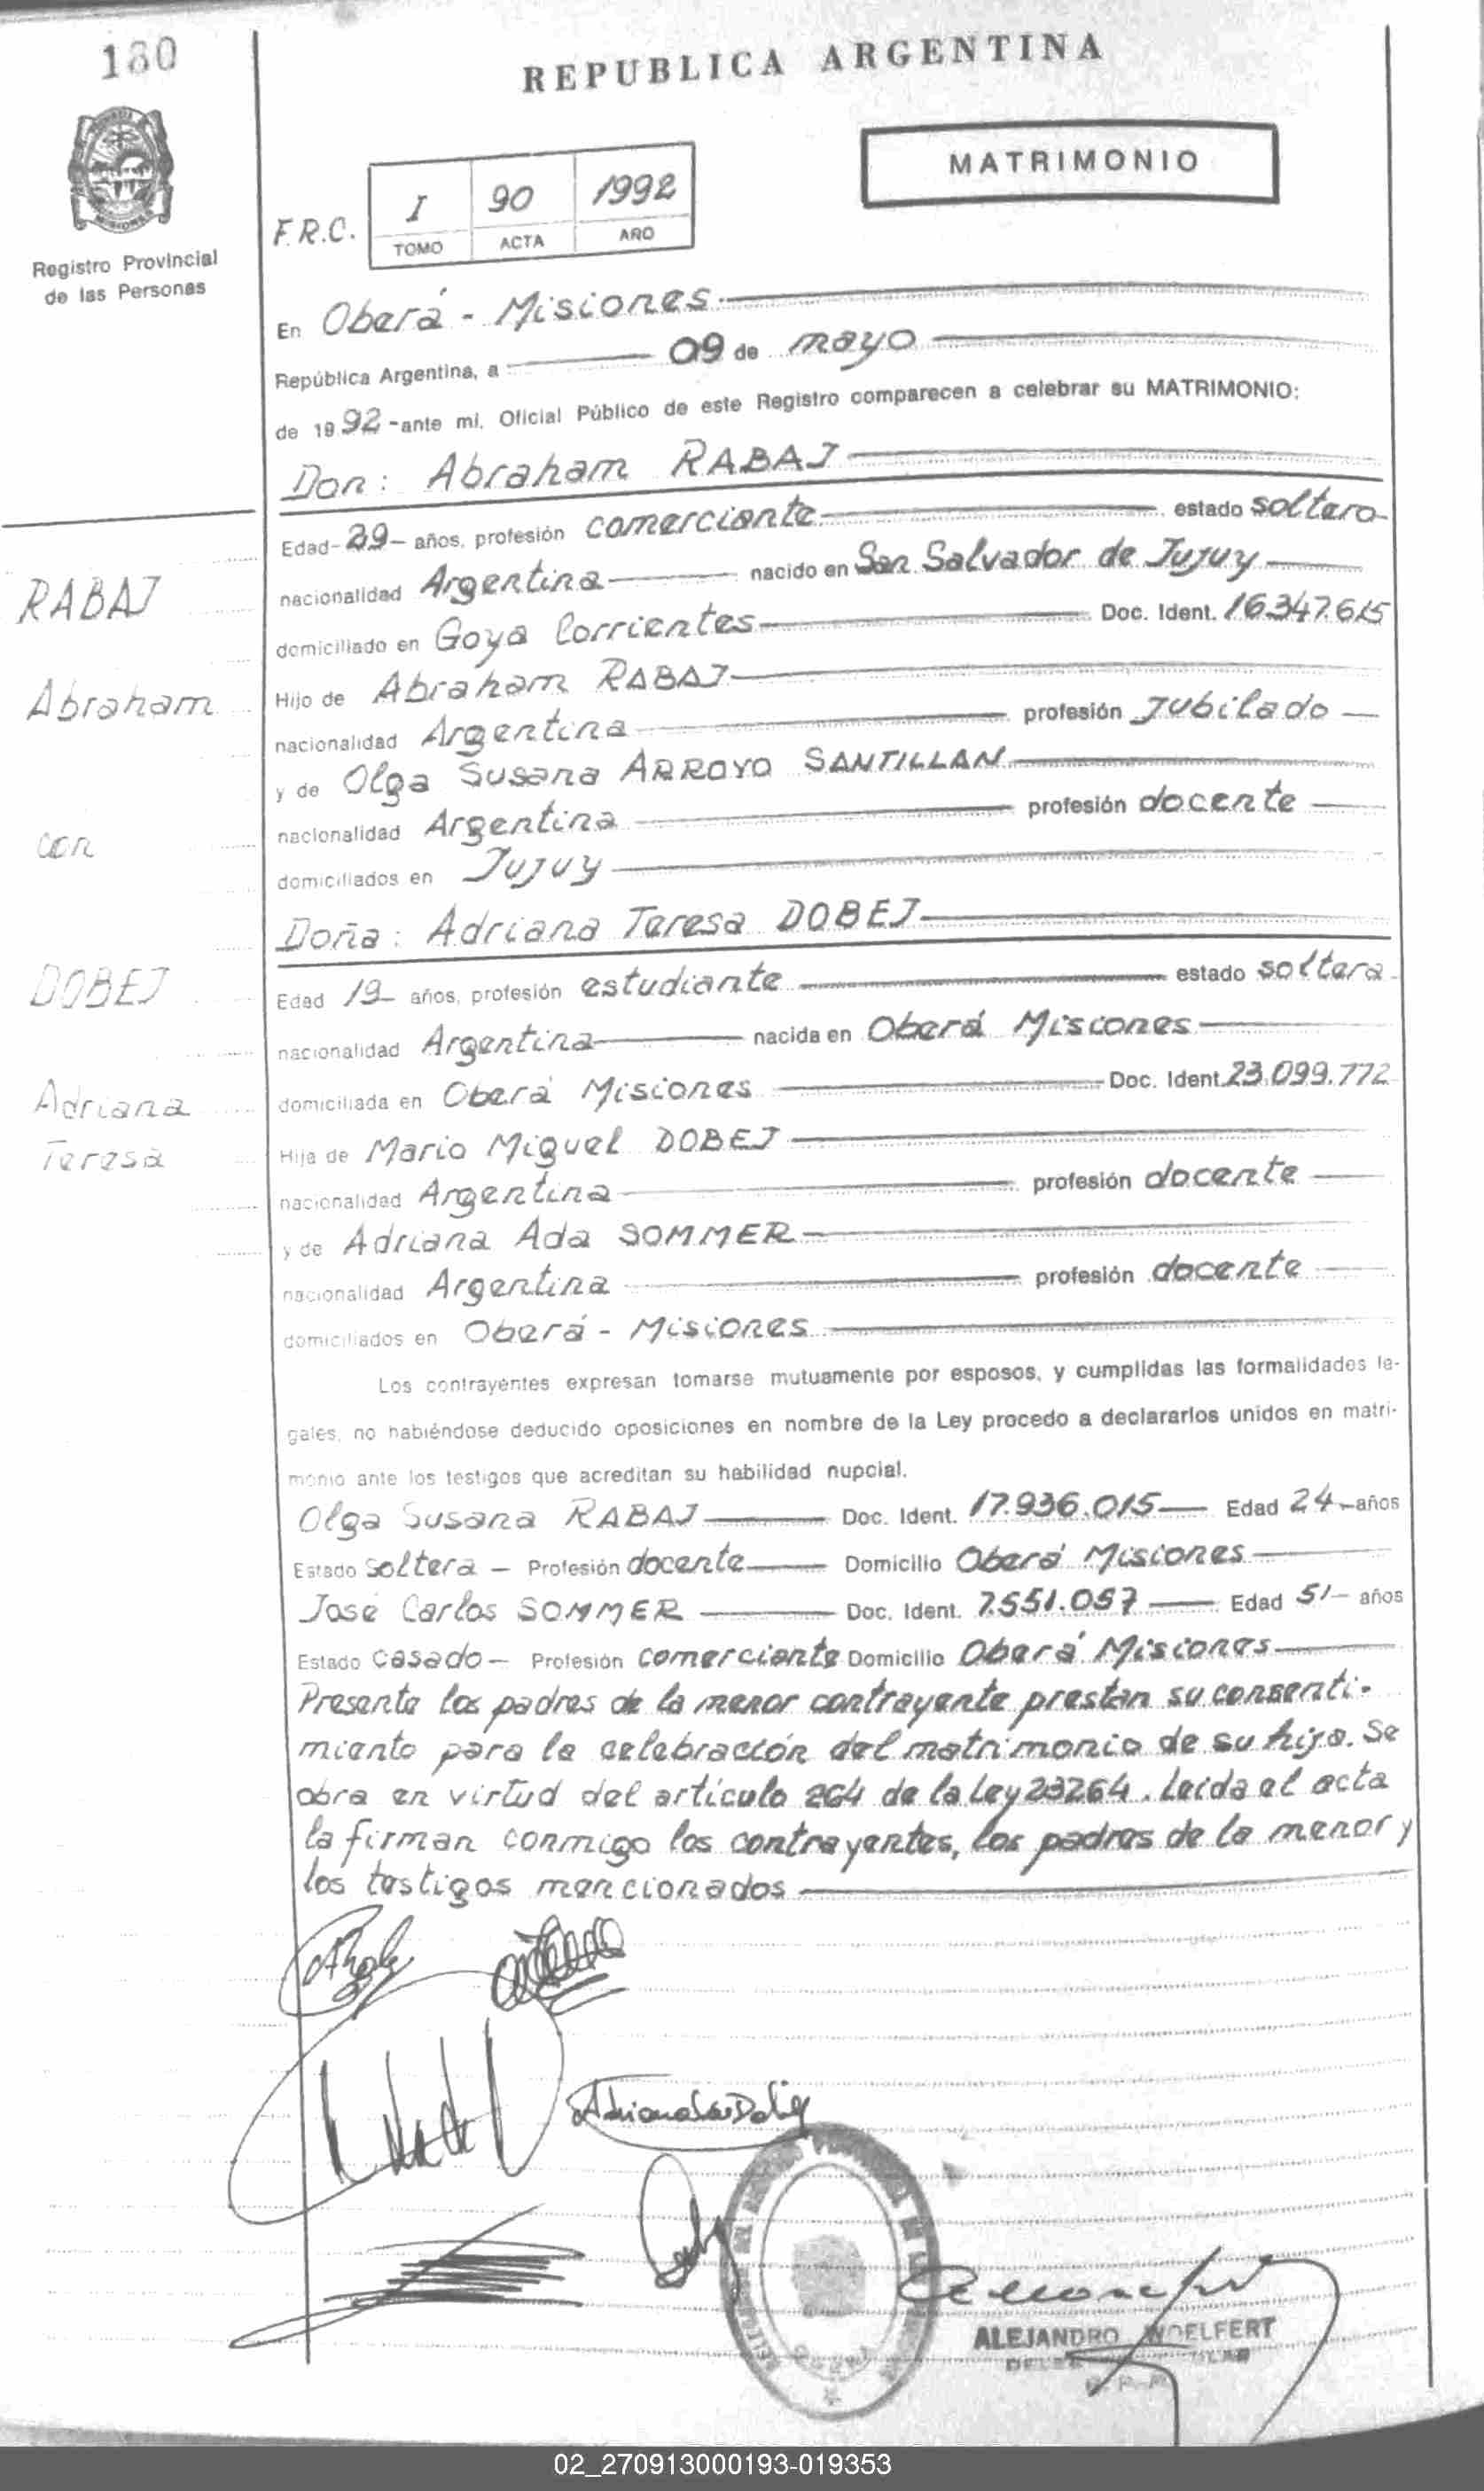 180
REPUBLICA ARGENTINA
MATRIMONIO
Registro Provincial
de las Personas
F.R.C.
I 90 1992
TOMO ACTA AÑO
En Oberá - Misiones
República Argentina, a 09 de mayo
de 1992 - ante mí, Oficial Público de este Registro comparecen a celebrar su MATRIMONIO:
Don: Abraham RABAJ
Edad - 29 - años, profesión comerciante estado soltero
nacionalidad Argentina nacido en San Salvador de Jujuy
domiciliado en Goya Corrientes Doc. Ident. 16.347.615
Hijo de Abraham RABAJ
nacionalidad Argentina profesión Jubilado
y de Olga Susana ARROYO SANTILLAN
nacionalidad Argentina profesión docente
domiciliados en Jujuy
Doña: Adriana Teresa DOBEJ
Edad 19 años, profesión estudiante estado soltera
nacionalidad Argentina nacida en Oberá Misiones
domiciliada en Oberá Misiones Doc. Ident. 23.099.772
Hija de Mario Miguel DOBEJ
nacionalidad Argentina profesión docente
y de Adriana Ada SOMMER
nacionalidad Argentina profesión docente
domiciliados en Oberá - Misiones
RABAJ
Abraham
con
DOBEJ
Adriana
Teresa
Los contrayentes expresan tomarse mutuamente por esposos, y cumplidas las formalidades le-
gales, no habiéndose deducido oposiciones en nombre de la Ley procedo a declararlos unidos en matri-
monio ante los testigos que acreditan su habilidad nupcial.
Olga Susana RABAJ Doc. Ident. 17.936.015 Edad 24 - años
Estado Soltera - Profesión docente Domicilio Oberá Misiones
José Carlos SOMMER Doc. Ident. 7.551.057 Edad 51 - años
Estado Casado - Profesión comerciante Domicilio Oberá Misiones
Presente los padres de la menor contrayente prestan su consenti-
miento para la celebración del matrimonio de su hija. Se
obra en virtud del artículo 264 de la Ley 23264. Leída el acta
la firman conmigo los contrayentes, los padres de la menor y
los testigos mencionados
ALEJANDRO WOELFERT
02_270913000193-019353